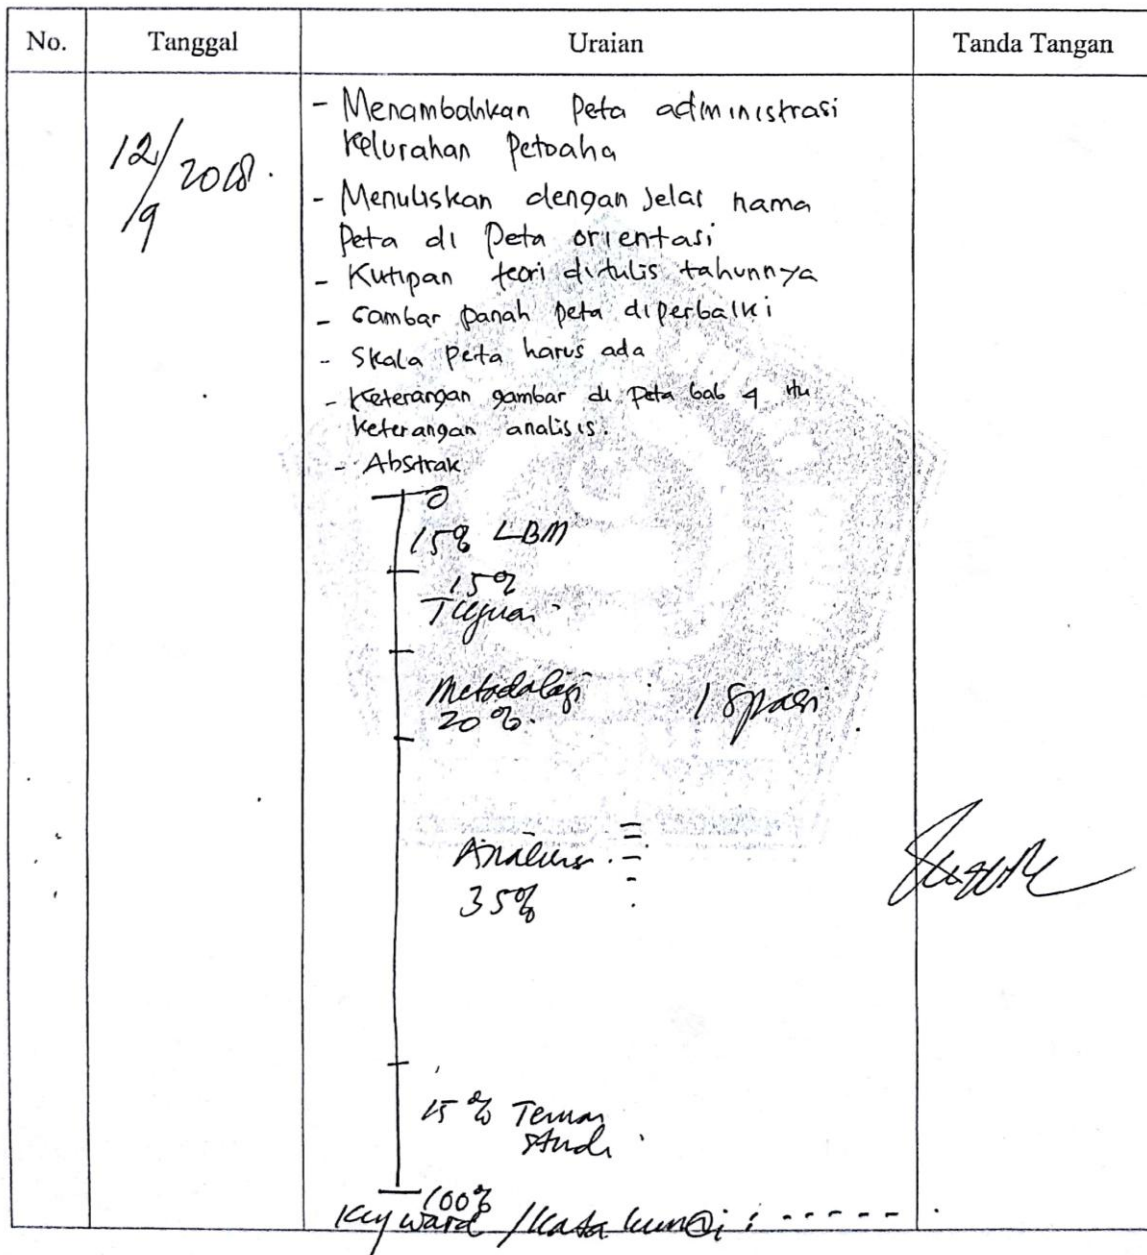 No. Tanggal Uraian Tanda Tangan
12/9 2018.
- Menambahkan Peta administrasi
Kelurahan Petoaha
- Menuliskan dengan Jelas nama
Peta di Peta orientasi
- Kutipan teori ditulis tahunnya
- Gambar panah peta diperbaiki
- Skala Peta harus ada
- Keterangan gambar di Peta bab 4 itu
keterangan analisis.
- Abstrak
0
15% LBM
15%
Tujuan
Metodologi 1 Spasi
20%.
Analisis
35%
15% Temuan
Studi
100%
Keyward / Kata kunci : - - - - - .